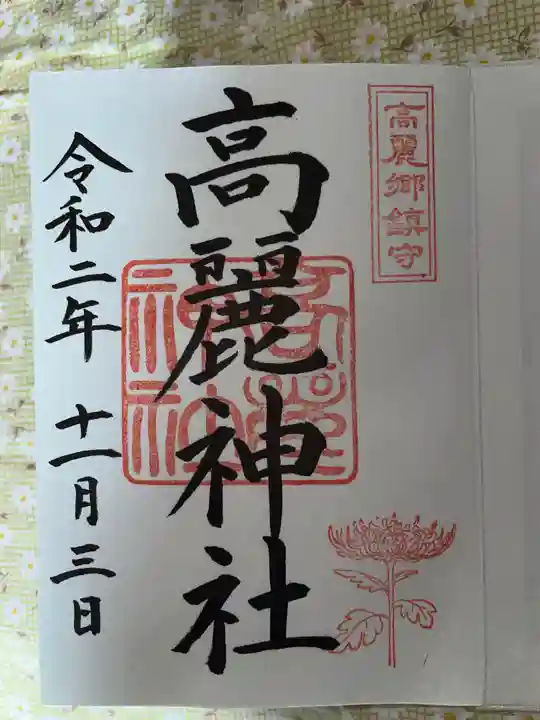 高麗郷鎮守
高麗神社
令和二年 十一月三日